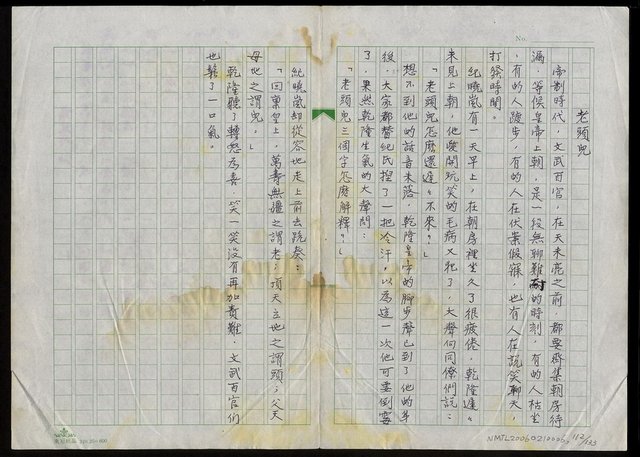 老頭兒
帝制時代，文武百官，在天未亮之前，都要齊集朝房待
漏，等候皇帝上朝，是一段無聊難耐的時刻，有的人枯坐
，有的人踱步，有的人在伏案假寐，也有人在說笑聊天，
打發時間。
紀曉嵐有一天早上，在朝房裡坐久了很疲倦，乾隆遲々
未見上朝，他愛開玩笑的毛病又犯了，大聲向同僚們說：
「老頭兒怎麼還遲々不來？」
想不到他的話音未落，乾隆皇帝的腳步聲已到了他的身
後，大家都替紀氏捏了一把冷汗，以為這一次他可要倒霉
了，果然乾隆生氣的大聲問：
「老頭兒三個字怎麼解釋？」
紀曉嵐却從容地走上前去跪奏：
「回稟皇上，萬壽無疆之謂老；頂天立地之謂頭；父天
母地之謂兒。」
乾隆聽了轉怒為喜，笑一笑沒有再加責難，文武百官們
也鬆了一口氣。
No.
NMTL20060210006
112/133